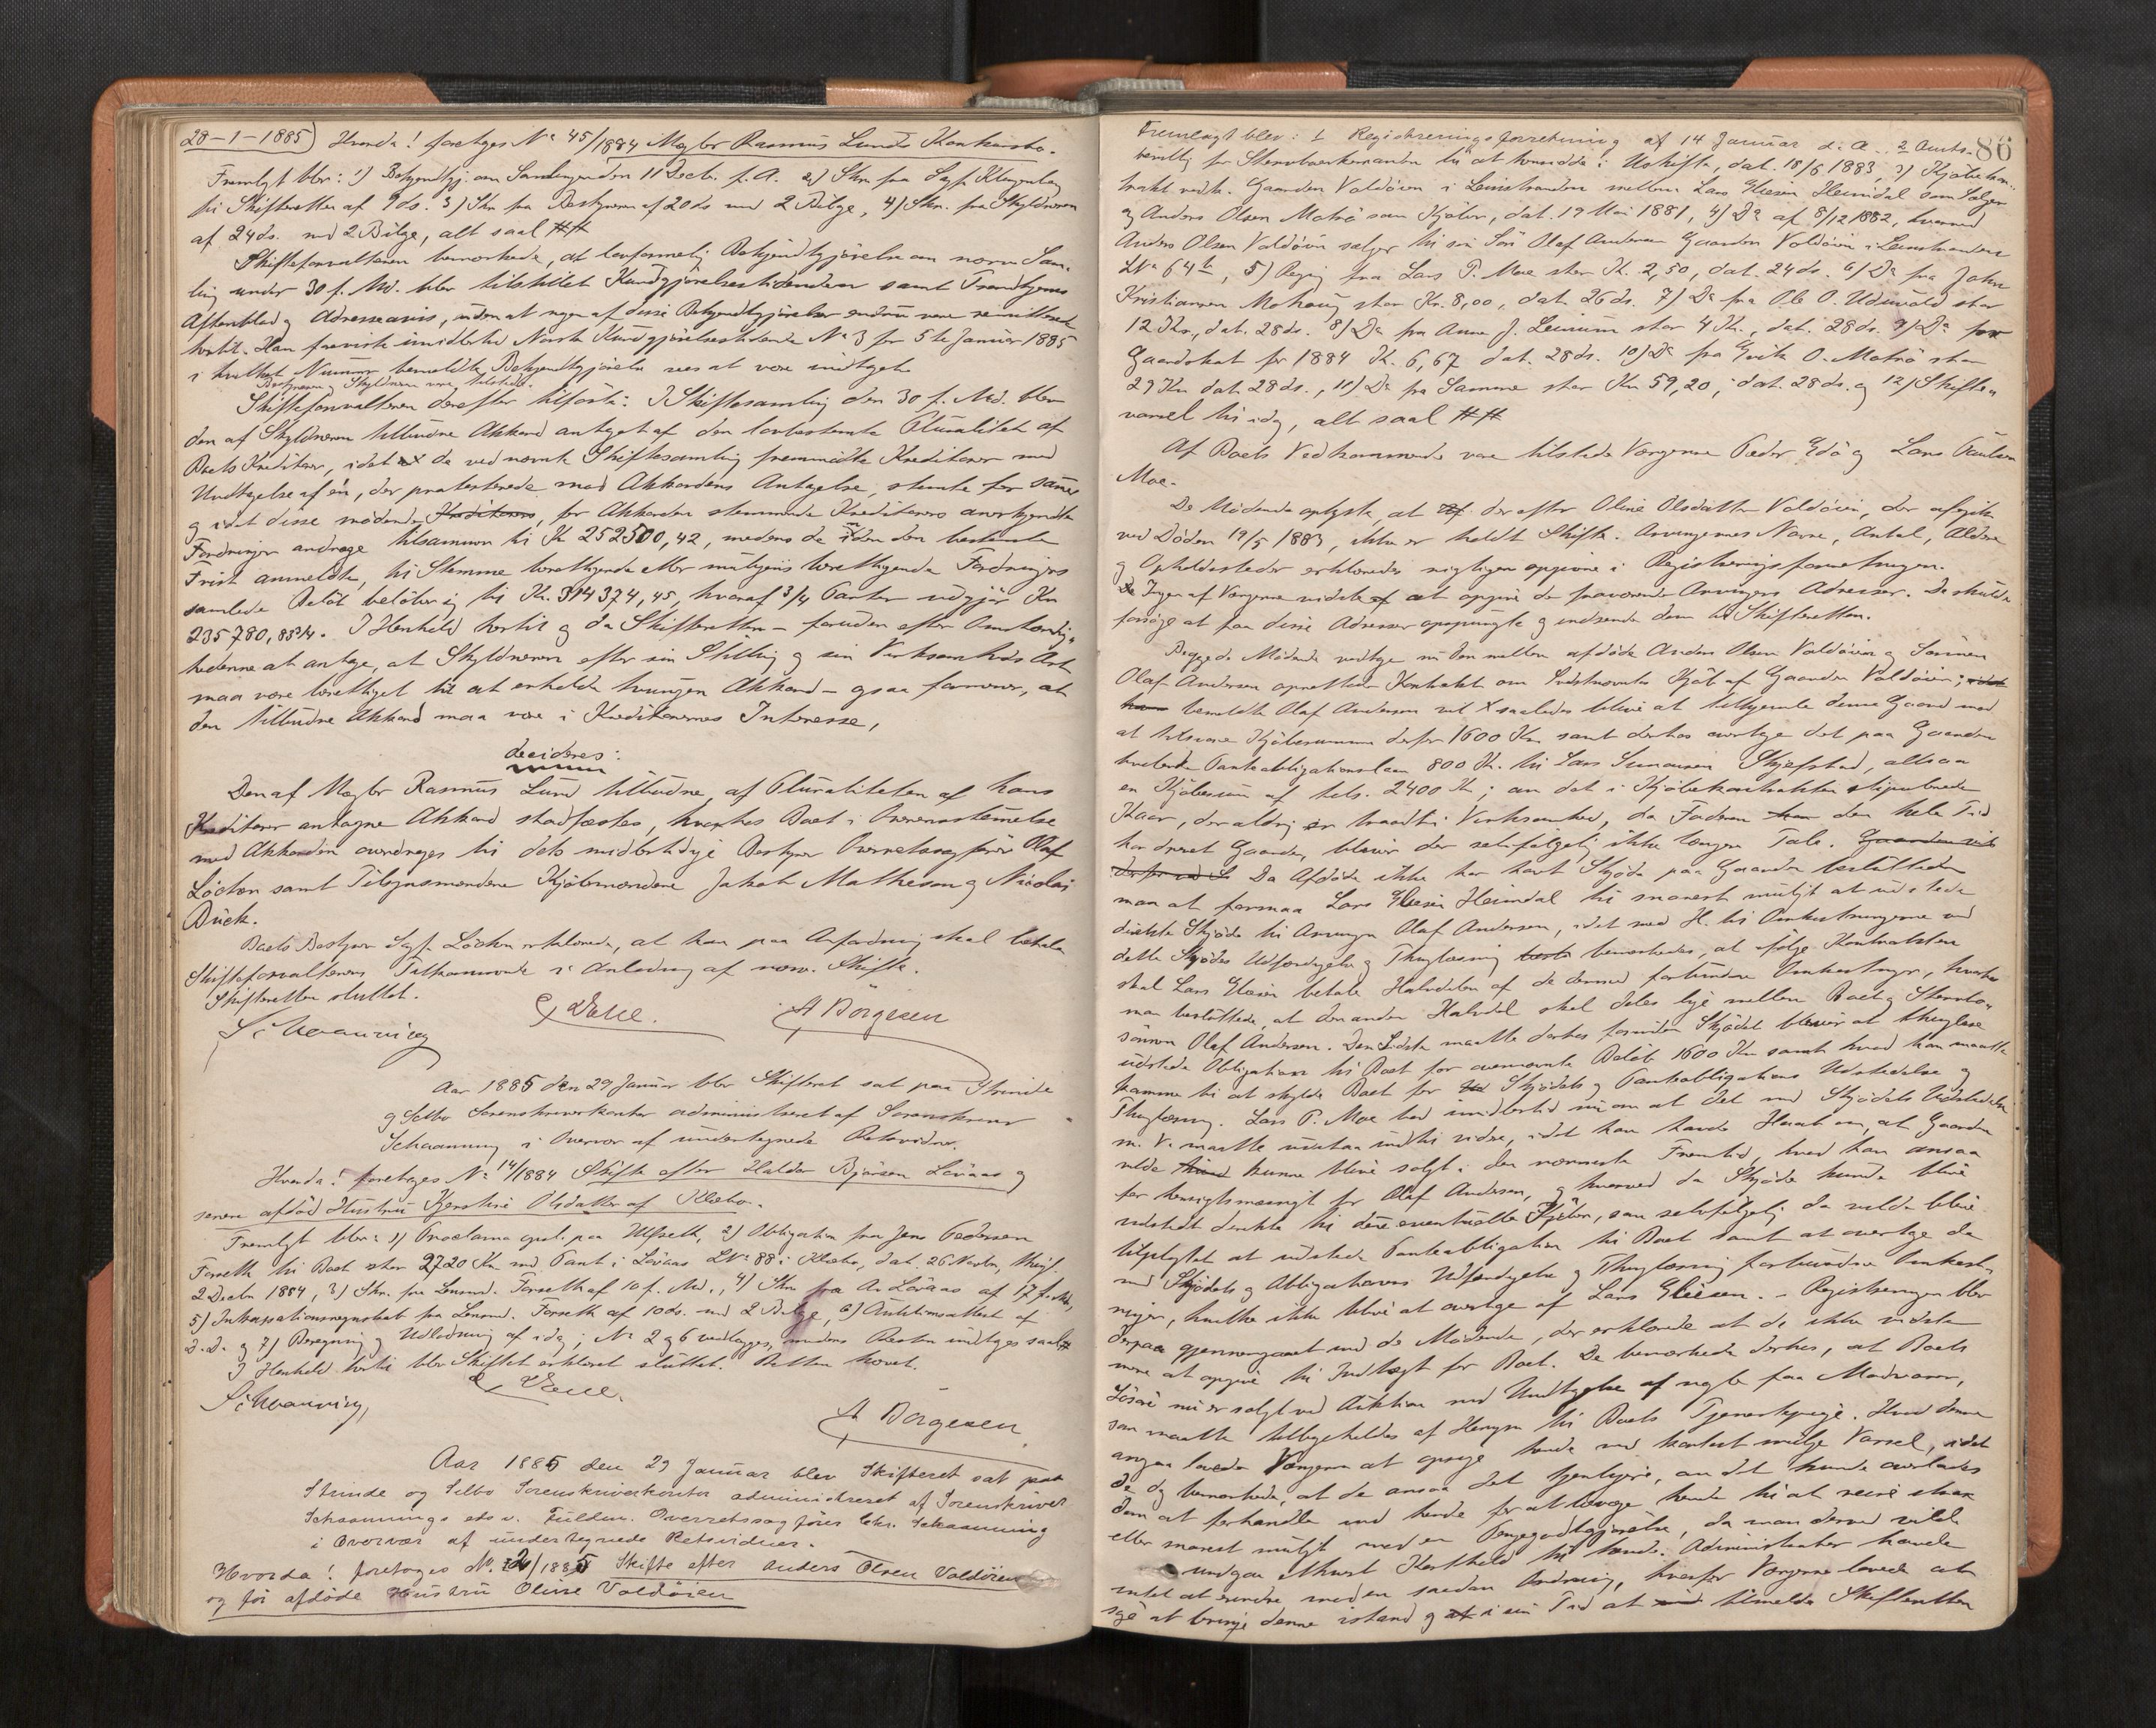 28-1-1885) Hvorda! foretages No 45/1884 Mægler Rasmus Lunds Konkursbo.
Fremlagt blev: 1) Bekjendtgj. om Samlingen den 11 Decbr. f. A. 2) Skr. fra Sagf. Klingenberg
til Skifteretten af 9 ds. 3) Skr. fra Bestyreren af 20 ds med 2 Bilage, 4) Skr. fra Skyldneren
af 24 ds. med 2 Bilage, alt saal. ##
Skifteforvalteren bemærkede, at lovformelig Bekjendtgjørelse om nævnte Sam-
ling under 30 f. Md. blev tilstillet Kundgjørelsestidenden samt Trondhjems
Aftenblad og Adresseavis, uden at nogen af disse Bekjendtgjørelser endnu var remitteret
hertil. Han foreviste imidlertid Norsk Kundgjørelsestidende No 3 for 5te Januar 1885
i hvilket Nummer bemeldte Bekjendtgjørelse sees at være indtaget.
Bestyreren og Skyldneren vare tilstede.
Skifteforvalteren derefter tilførte: I Skiftesamling den 30 f. Md. blev
den af Skyldneren tilbudne Akkord antaget af den lovbestemte Pluralitet af
Boets Kreditorer, idet de ved nævnte Skiftesamling fremmødte Kreditorer med
Undtagelse af én, der protesterede mod Akkordens Antagelse, stemte for samme
og idet disse mødende Kreditorers, for Akkorden stemmende Kreditorers anerkjendte
Fordringer androge tilsammen til Kr 252500,42, medens de inden den bestemte
Frist anmeldte, til Stemme berettigende eller muligens berettigende Fordringers
samlede Beløb beløber sig til Kr. 314374,45, hvoraf 3/4 Parter udgjør Kr
235,780,83 3/4. I Henhold hertil og da Skifteretten – foruden efter Omstændig-
hederne at antage, at Skyldneren efter sin Stilling og sin Virksomheds Art
maa være berettiget til at erholde tvungen Akkord – ogsaa formener, at
den tilbudne Akkord maa være i Kreditorernes Interesse,
decideres:
Den af Mægler Rasmus Lund tilbudne, af Pluraliteten af hans
Kreditorer antagne Akkord stadfæstes, hvorhos Boet i Overensstemmelse
med Akkorden overdrages til dets midlertidige Bestyrer Overretssagfører Olaf
Löchen samt Tilsynsmændene Kjöbmændene Jakob Matheson og Nicolai
Buck.
Boets Bestyrer Sagf. Löchen erklærede, at han paa Anfordring skal betale
Skifteforvalterens Tilkommende i Anledning af nærv. Skifte.
Skifteretten sluttet.
Schaanning
A Börgesen
Aar 1885 den 29 Januar blev Skifteret sat paa Strinde
og Selbo Sorenskriverkontor administreret af Sorenskriver
Schaanning i Overvær af undertegnede Retsvidner.
Hvorda! foretoges No 14/1884 Skifte efter Haldor Bjørsen Lövaas og
senere afdød Hustru Kjerstine Olsdatter af Klæbo.
Fremlagt blev: 1) Proclama opl. paa Ulfseth, 2) Obligation fra Jens Pedersen
Forseth til Boet stor 2720 Kr med Pant i Lövaas LNo 88 i Klæbo, dat. 26 Novbr, thingl.
2 Decbr 1884, 3) Skr. fra Lensmd. Forseth af 10 f. Md., 4) Skr. fra A. Lövaas af 17 f. Md,
5) Inkassationsregnskab fra Lensmd. Forseth af 10 ds. med 2 Bilage, 6) Auktionsattest af
D. D. og 7) Beregning og Udlodning af idag; No 2 og 6 vedlægges, medens Resten indtages saal. ##
I Henhold hertil blev Skiftet erklæret sluttet. Retten hævet.
Schaanning
A Börgesen
Aar 1885 den 29 Januar blev Skifteret sat paa
Strinde og Selbo Sorenskriverkontor administreret af Sorenskriver
Schaannings efter Fuldm. Overretssagfører Chr. Schaanning
i Overvær af undertegnede Retsvidner.
Hvorda! foretoges No. 2/1885 Skifte efter Anders Olsen Valdöien
og før afdöde Hustru Oline Valdöien
86
Fremlagt blev: 1 Registreringsforretning af 14 Januar d. A. 2
bevillig for Stervboenkemanden til at hensidde i Uskiftet, dat. 18/6 1883, 3) Kjøbekon-
trakt vedk. Gaarden Valdöien i Leinstranden mellem Lars Eliesen Heimdal som Sælger
og Anders Olsen Moträ som Kjøber, dat. 19 Mai 1881, 4) Do af 8/12 1882, hvorved
Anders Olsen Valdöien sælger til sin Søn Olaf Andersen Gaarden Valdöien i Leinstranden
LNo 64 b, 5) Regng fra Lars P. Moe stor Kr. 2,50, dat. 24 ds. 6) Do fra John
Kristiansen Mohaug stor Kr. 8,00, dat. 26 ds. 7) Do fra Ole O. Uduvold stor
12 Kr., dat. 28 ds. 8) Do fra Anne J. Leinum stor 4 Kr., dat. 28 ds. 9) Do for
Gaardskat for 1884 Kr. 6,67 dat. 28 ds. 10) Do fra Eirik O. Moträ stor
29 Kr. dat. 28 ds., 11) Do fra Samme stor Kr 59,20, dat. 28 ds. og 12) Skifte-
varsel til idag, alt saal. ##
Af Boets Vedkommende vare tilstede Værgerne Peder Edø og Lars Paulsen
Moe.
De Mødende oplyste, at der efter Oline Olsdatter Valdöien, der afgik
ved Døden 19/5 1883, ikke er holdt Skifte. Arvingernes Navne, Antal, Aldere
og Opholdssteder erklæredes rigtigen opgivne i Registreringsforretningen.
Ingen af Værgerne vidste at opgive de fraværende Arvingers Adresser. De skulde
forsøge at faa disse Adresser opspurgte og indsende dem til Skifteretten.
Begge de Mødende vedtoge nu den mellem afdøde Anders Olsen Valdöien og Sønnen
Olaf Andersen oprettede Kontrakt om Sidstnævntes Kjøb af Gaarden Valdöien;
bemeldte Olaf Andersen vil saaledes blive at tilhjemle denne Gaard mod
at tilsvare Kjøbesummen derfor 1600 Kr. samt derhos overtage det paa Gaarden
heftende Pantobligationslaan 800 Kr. til Lars Simonsen Skjefstad, altsaa
en Kjøbesum af tils. 2400 Kr; om det i Kjøbekontrakten stipulerede
Kaar, der aldrig er traadt i Virksomhed, da Faderen den hele Tid
har drevet Gaarden, bliver der selvfølgelig ikke længere Tale. Gaarden vil
Da Afdøde ikke har havt Skjøde paa Gaarden besluttede
man at formaa Lars Eliesen Heimdal til snarest muligt at udstede
direkte Skjøde til Arvingen Olaf Andersen, idet med H. til Omkostningerne ved
dette Skjødes Udfærdigelse og Thinglæsning bemærkedes, at ifølge Kontrakten
skal Lars Eliesen betale Halvdelen af de dermed forbundne Omkostninger, hvorhos
man besluttede, at den anden Halvdel skal deles lige mellem Boet og Stervbo-
sønnen Olaf Andersen. Den Sidste maatte derhos foruden Skjødet blive at thinglæse
udstede Obligation til Boet for ovennævnte Beløb 1600 Kr samt hvad han maatte
komme til at skylde Boet for Skjødets og Pantobligations Udstedelse og
Thinglæsning. Lars P. Moe bad imidlertid nu om at det med Skjødets Udstedelse
m. V. maatte udstaa indtil videre, idet han havde Haab om, at Gaarden
vilde kunne blive solgt i den nærmeste Fremtid, hvad han ansaa
for hensigtsmæssigt for Olaf Andersen, og hvorved da Skjøde kunde blive
udstedt direkte til den eventuelle Kjøber, som selvfølgelig da vilde blive
tilpligtet at udstede Pantobligation til Boet samt at overtage de
med Skjødets og Obligationens Udfærdigelse og Thinglæsning forbundne Omkost-
ninger, hvilke ikke blive at overtage af Lars Eliesen. – Registreringen blev
derpaa gjennemgaaet med de Mødende, der erklærede at de ikke vidste
mere at opgive til Indtægt for Boet. De bemærkede derhos, at Boets
Løsøre nu er solgt ved Auktion med Undtagelse af nogle faa Madvarer,
som maatte tilbageholdes af Hensyn til Boets Tjenestepige. Hvad denne
angaar lovede Værgerne at opsige hende med kortest mulige Varsel, idet
de dog bemærkede, at de ansaa det hensigtsmæssigt, om det kunde overlades
dem at forhandle med hende for at bevæge hende til at reise strax
eller snarest muligt mod en Pengegodtgjørelse, da man derved vilde
undgaa ethvert Kosthold til hende. Administrator havde
intet at erindre mod en saadan Ordning, hvorfor Værgerne lovede at
søge at bringe denne istand og i sin Tid at tilmelde Skifteretten